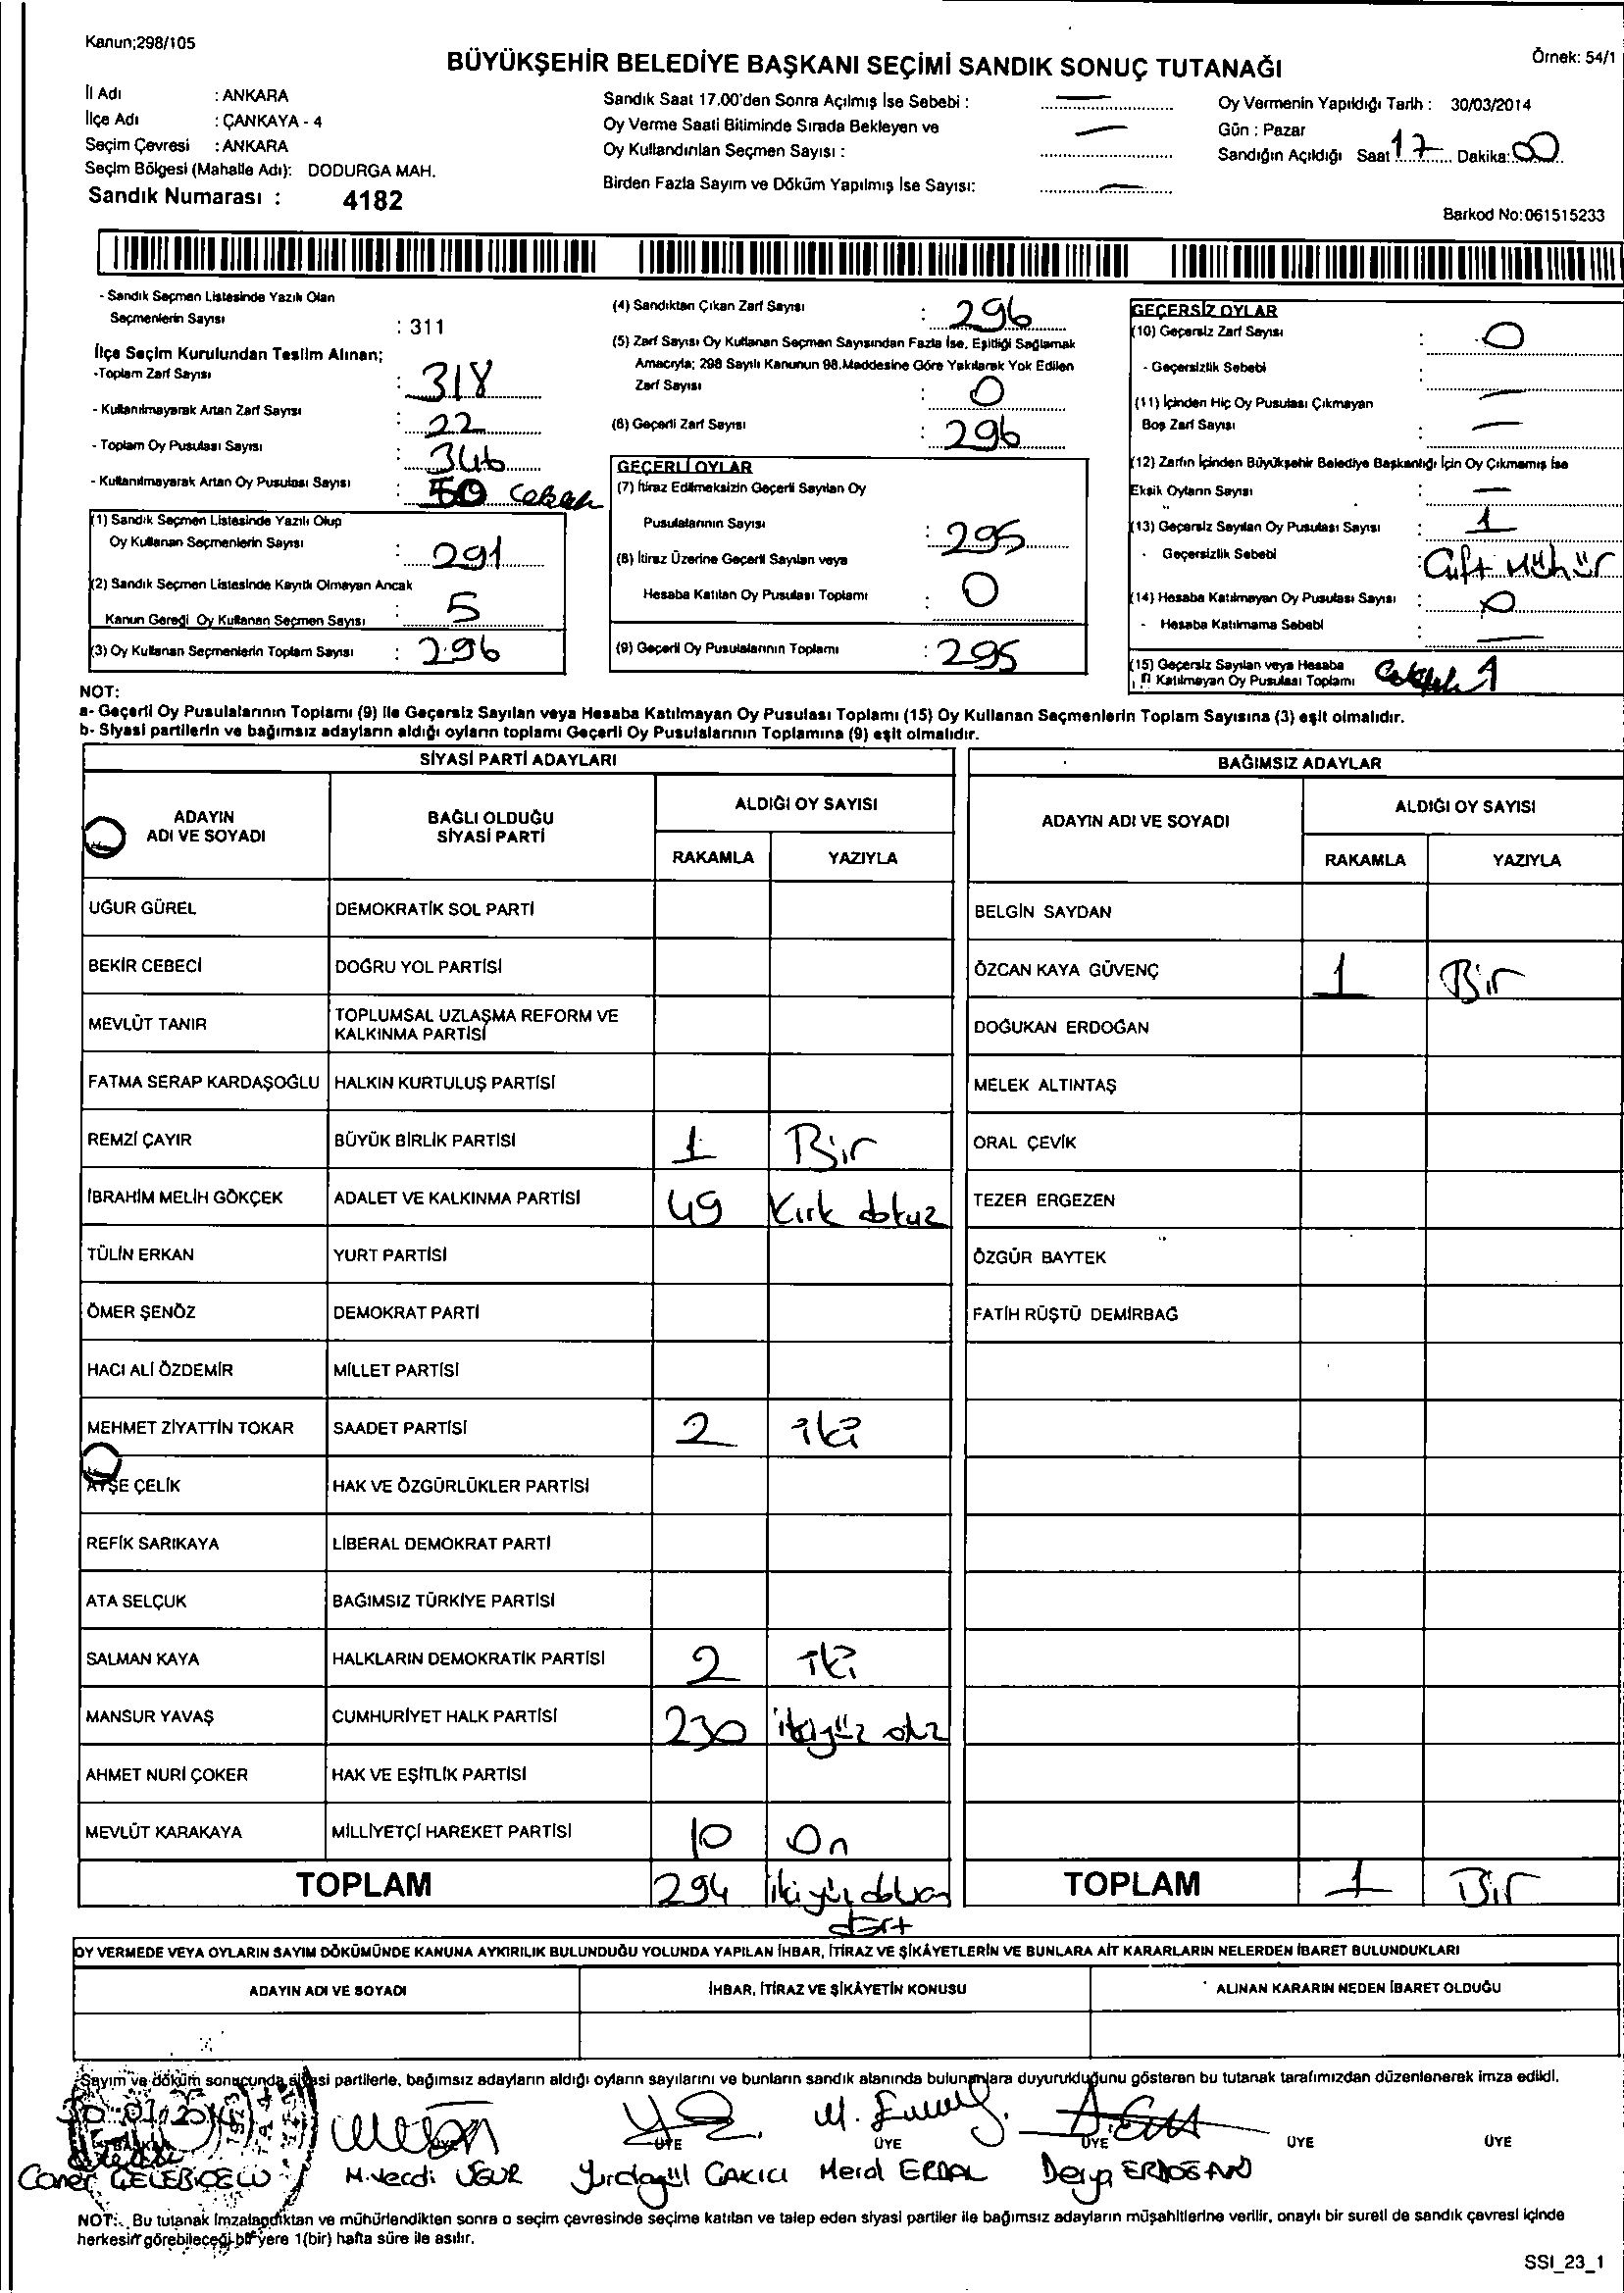 Kanun;298/105
BÜYÜKŞEHİR BELEDİYE BAŞKANI SEÇİMİ SANDIK SONUÇ TUTANAĞI
Örnek: 54/1
İl Adı : ANKARA
İlçe Adı : ÇANKAYA - 4
Seçim Çevresi : ANKARA
Seçim Bölgesi (Mahalle Adı): DODURGA MAH.
Sandık Numarası : 4182
Sandık Saat 17.00'den Sonra Açılmış İse Sebebi : —
Oy Verme Saati Bitiminde Sırada Bekleyen ve
Oy Kullandırılan Seçmen Sayısı : —
Birden Fazla Sayım ve Döküm Yapılmış İse Sayısı: —
Oy Vermenin Yapıldığı Tarih : 30/03/2014
Gün : Pazar
Sandığın Açıldığı Saat 17 Dakika: 00
Barkod No:061515233
- Sandık Seçmen Listesinde Yazılı Olan
Seçmenlerin Sayısı : 311
İlçe Seçim Kurulundan Teslim Alınan;
-Toplam Zarf Sayısı : 318
- Kullanılmayarak Artan Zarf Sayısı : 22
- Toplam Oy Pusulası Sayısı : 346
- Kullanılmayarak Artan Oy Pusulası Sayısı : 50
(1) Sandık Seçmen Listesinde Yazılı Olup
Oy Kullanan Seçmenlerin Sayısı : 291
(2) Sandık Seçmen Listesinde Kayıtlı Olmayan Ancak
Kanun Gereği Oy Kullanan Seçmen Sayısı : 5
(3) Oy Kullanan Seçmenlerin Toplam Sayısı : 296
(4) Sandıktan Çıkan Zarf Sayısı : 296
(5) Zarf Sayısı Oy Kullanan Seçmen Sayısından Fazla İse, Eşitliği Sağlamak
Amacıyla; 298 Sayılı Kanunun 98.Maddesine Göre Yakılarak Yok Edilen
Zarf Sayısı : 0
(6) Geçerli Zarf Sayısı : 296
GEÇERLİ OYLAR
(7) İtiraz Edilmeksizin Geçerli Sayılan Oy
Pusulalarının Sayısı : 295
(8) İtiraz Üzerine Geçerli Sayılan veya
Hesaba Katılan Oy Pusulası Toplamı : 0
(9) Geçerli Oy Pusulalarının Toplamı : 295
GEÇERSİZ OYLAR
(10) Geçersiz Zarf Sayısı : 0
- Geçersizlik Sebebi :
(11) İçinden Hiç Oy Pusulası Çıkmayan —
Boş Zarf Sayısı : —
(12) Zarfın İçinden Büyükşehir Belediye Başkanlığı İçin Oy Çıkmamış İse
Eksik Oyların Sayısı : —
(13) Geçersiz Sayılan Oy Pusulası Sayısı : 1
- Geçersizlik Sebebi : Çift Mühür
(14) Hesaba Katılmayan Oy Pusulası Sayısı : 0
- Hesaba Katılmama Sebebi : —
(15) Geçersiz Sayılan veya Hesaba
Katılmayan Oy Pusulası Toplamı 1
NOT:
a- Geçerli Oy Pusulalarının Toplamı (9) ile Geçersiz Sayılan veya Hesaba Katılmayan Oy Pusulası Toplamı (15) Oy Kullanan Seçmenlerin Toplam Sayısına (3) eşit olmalıdır.
b- Siyasi partilerin ve bağımsız adayların aldığı oyların toplamı Geçerli Oy Pusulalarının Toplamına (9) eşit olmalıdır.
SİYASİ PARTİ ADAYLARI
ADAYIN ADI VE SOYADI BAĞLI OLDUĞU SİYASİ PARTİ ALDIĞI OY SAYISI
RAKAMLA YAZIYLA
UĞUR GÜREL DEMOKRATİK SOL PARTİ
BEKİR CEBECİ DOĞRU YOL PARTİSİ
MEVLÜT TANIR TOPLUMSAL UZLAŞMA REFORM VE KALKINMA PARTİSİ
FATMA SERAP KARDAŞOĞLU HALKIN KURTULUŞ PARTİSİ
REMZİ ÇAYIR BÜYÜK BİRLİK PARTİSİ 1 Bir
İBRAHİM MELİH GÖKÇEK ADALET VE KALKINMA PARTİSİ 49 Kırk dokuz
TÜLİN ERKAN YURT PARTİSİ
ÖMER ŞENÖZ DEMOKRAT PARTİ
HACI ALİ ÖZDEMİR MİLLET PARTİSİ
MEHMET ZİYATTİN TOKAR SAADET PARTİSİ 2 iki
AYŞE ÇELİK HAK VE ÖZGÜRLÜKLER PARTİSİ
REFİK SARIKAYA LİBERAL DEMOKRAT PARTİ
ATA SELÇUK BAĞIMSIZ TÜRKİYE PARTİSİ
SALMAN KAYA HALKLARIN DEMOKRATİK PARTİSİ 2 iki
MANSUR YAVAŞ CUMHURİYET HALK PARTİSİ 230 ikiyüz otuz
AHMET NURİ ÇOKER HAK VE EŞİTLİK PARTİSİ
MEVLÜT KARAKAYA MİLLİYETÇİ HAREKET PARTİSİ 10 On
TOPLAM 294 ikiyüz doksan dört
BAĞIMSIZ ADAYLAR
ADAYIN ADI VE SOYADI ALDIĞI OY SAYISI
RAKAMLA YAZIYLA
BELGİN SAYDAN
ÖZCAN KAYA GÜVENÇ 1 Bir
DOĞUKAN ERDOĞAN
MELEK ALTINTAŞ
ORAL ÇEVİK
TEZER ERGEZEN
ÖZGÜR BAYTEK
FATİH RÜŞTÜ DEMİRBAĞ
TOPLAM 1 Bir
OY VERMEDE VEYA OYLARIN SAYIM DÖKÜMÜNDE KANUNA AYKIRILIK BULUNDUĞU YOLUNDA YAPILAN İHBAR, İTİRAZ VE ŞİKÂYETLERİN VE BUNLARA AİT KARARLARIN NELERDEN İBARET BULUNDUKLARI
ADAYIN ADI VE SOYADI İHBAR, İTİRAZ VE ŞİKÂYETİN KONUSU ALINAN KARARIN NEDEN İBARET OLDUĞU
Sayım ve döküm sonucunda siyasi partilerle, bağımsız adayların aldığı oyların sayılarını ve bunların sandık alanında bulunanlara duyurulduğunu gösteren bu tutanak tarafımızdan düzenlenerek imza edildi.
BAŞKAN ÜYE ÜYE ÜYE ÜYE ÜYE ÜYE
Caner ÇELEBİOĞLU M.Vecdi UĞUR Yurdagül ÇAKICI Meral ERDAL Derya ERDOĞAN
NOT: Bu tutanak imzalandıktan ve mühürlendikten sonra o seçim çevresinde seçime katılan ve talep eden siyasi partiler ile bağımsız adayların müşahitlerine verilir, onaylı bir sureti de sandık çevresi içinde
herkesin görebileceği bir yere 1(bir) hafta süre ile asılır.
SSI_23_1